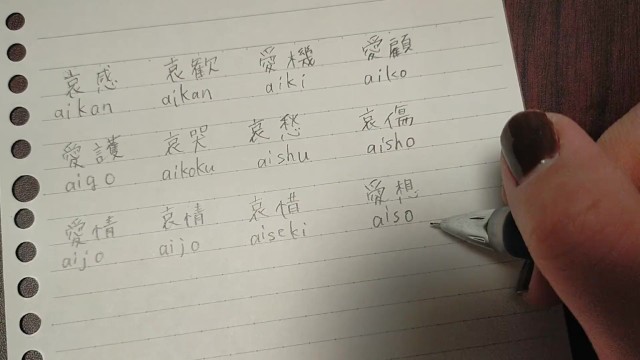 哀感 哀歓 愛機 愛顧
aikan aikan aiki aiko
愛護 哀哭 哀愁 哀傷
aigo aikoku aishu aisho
愛情 哀情 哀惜 愛想
aijo aijo aiseki aiso